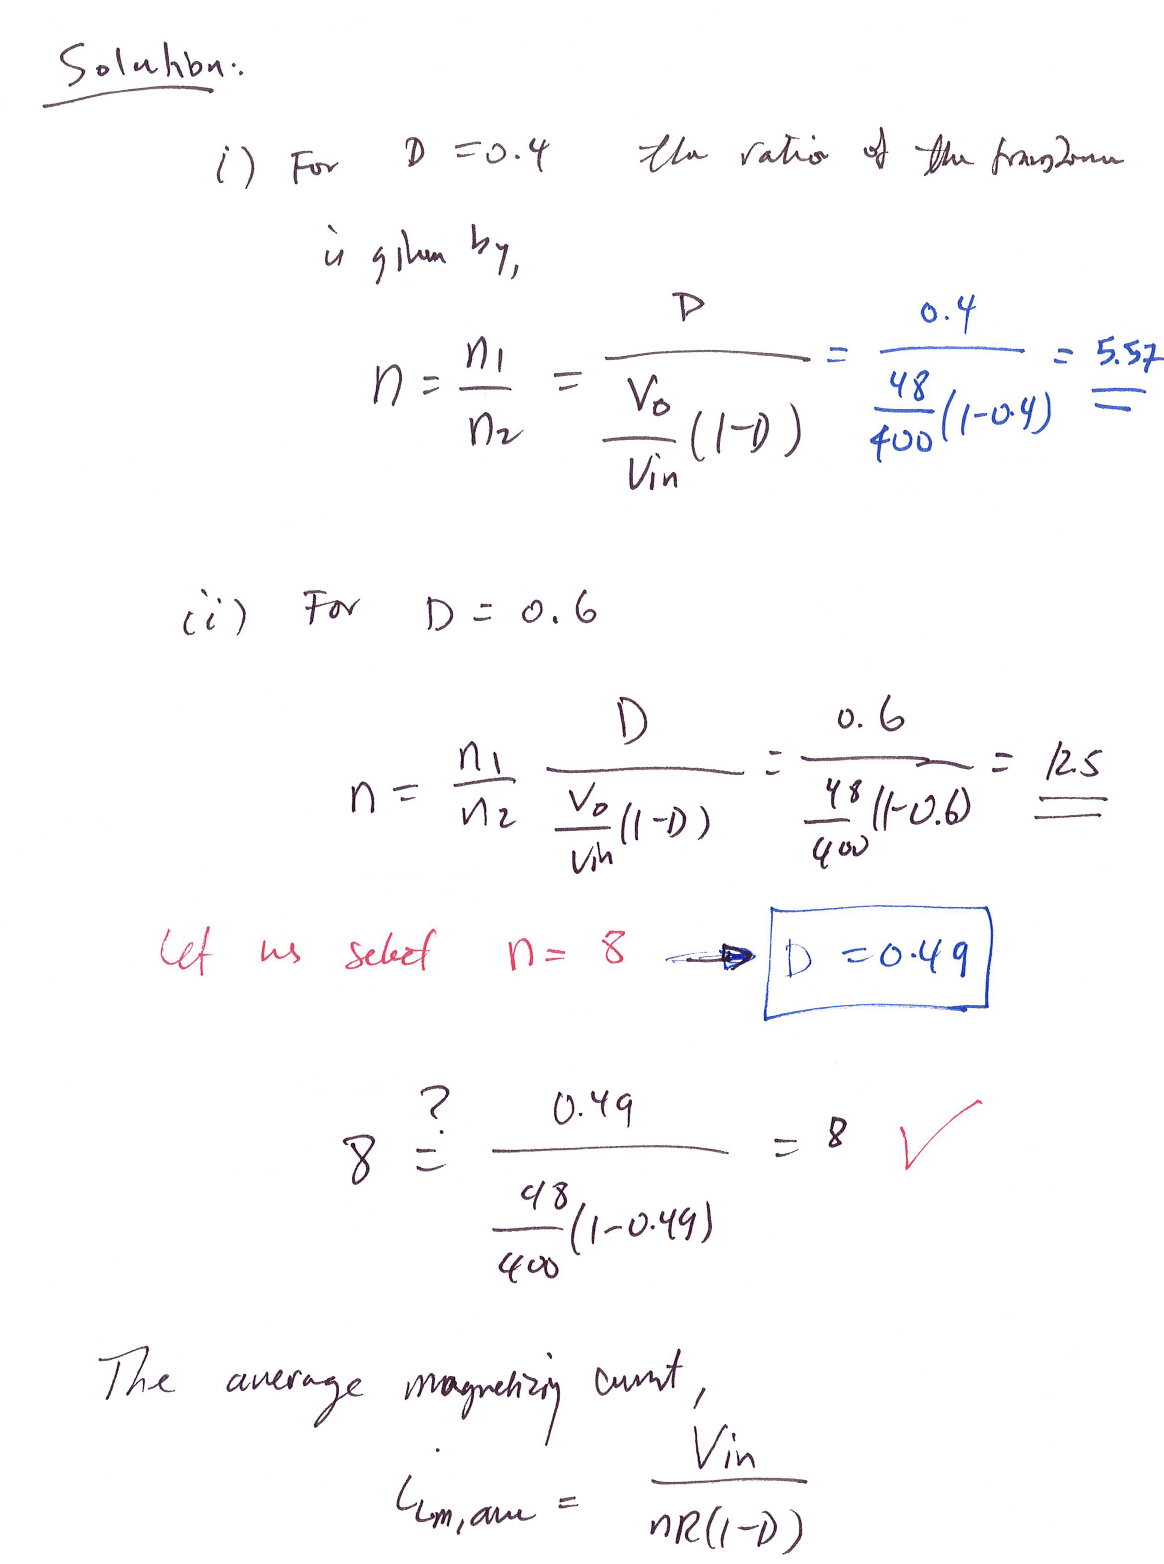 Solution:
i) For D = 0.4 the ratio of the transformer
is given by,
n = n1/n2 = D / (Vo/Vin (1-D)) = 0.4 / (48/400 (1-0.4)) = 5.57
(ii) For D = 0.6
n = n1/n2 D / (Vo/Vin (1-D)) = 0.6 / (48/400 (1-0.6)) = 12.5
Let us select n = 8 → D = 0.49
8 =? 0.49 / (48/400 (1-0.49)) = 8 ✓
The average magnetizing current,
iLm,ave = Vin / nR(1-D)